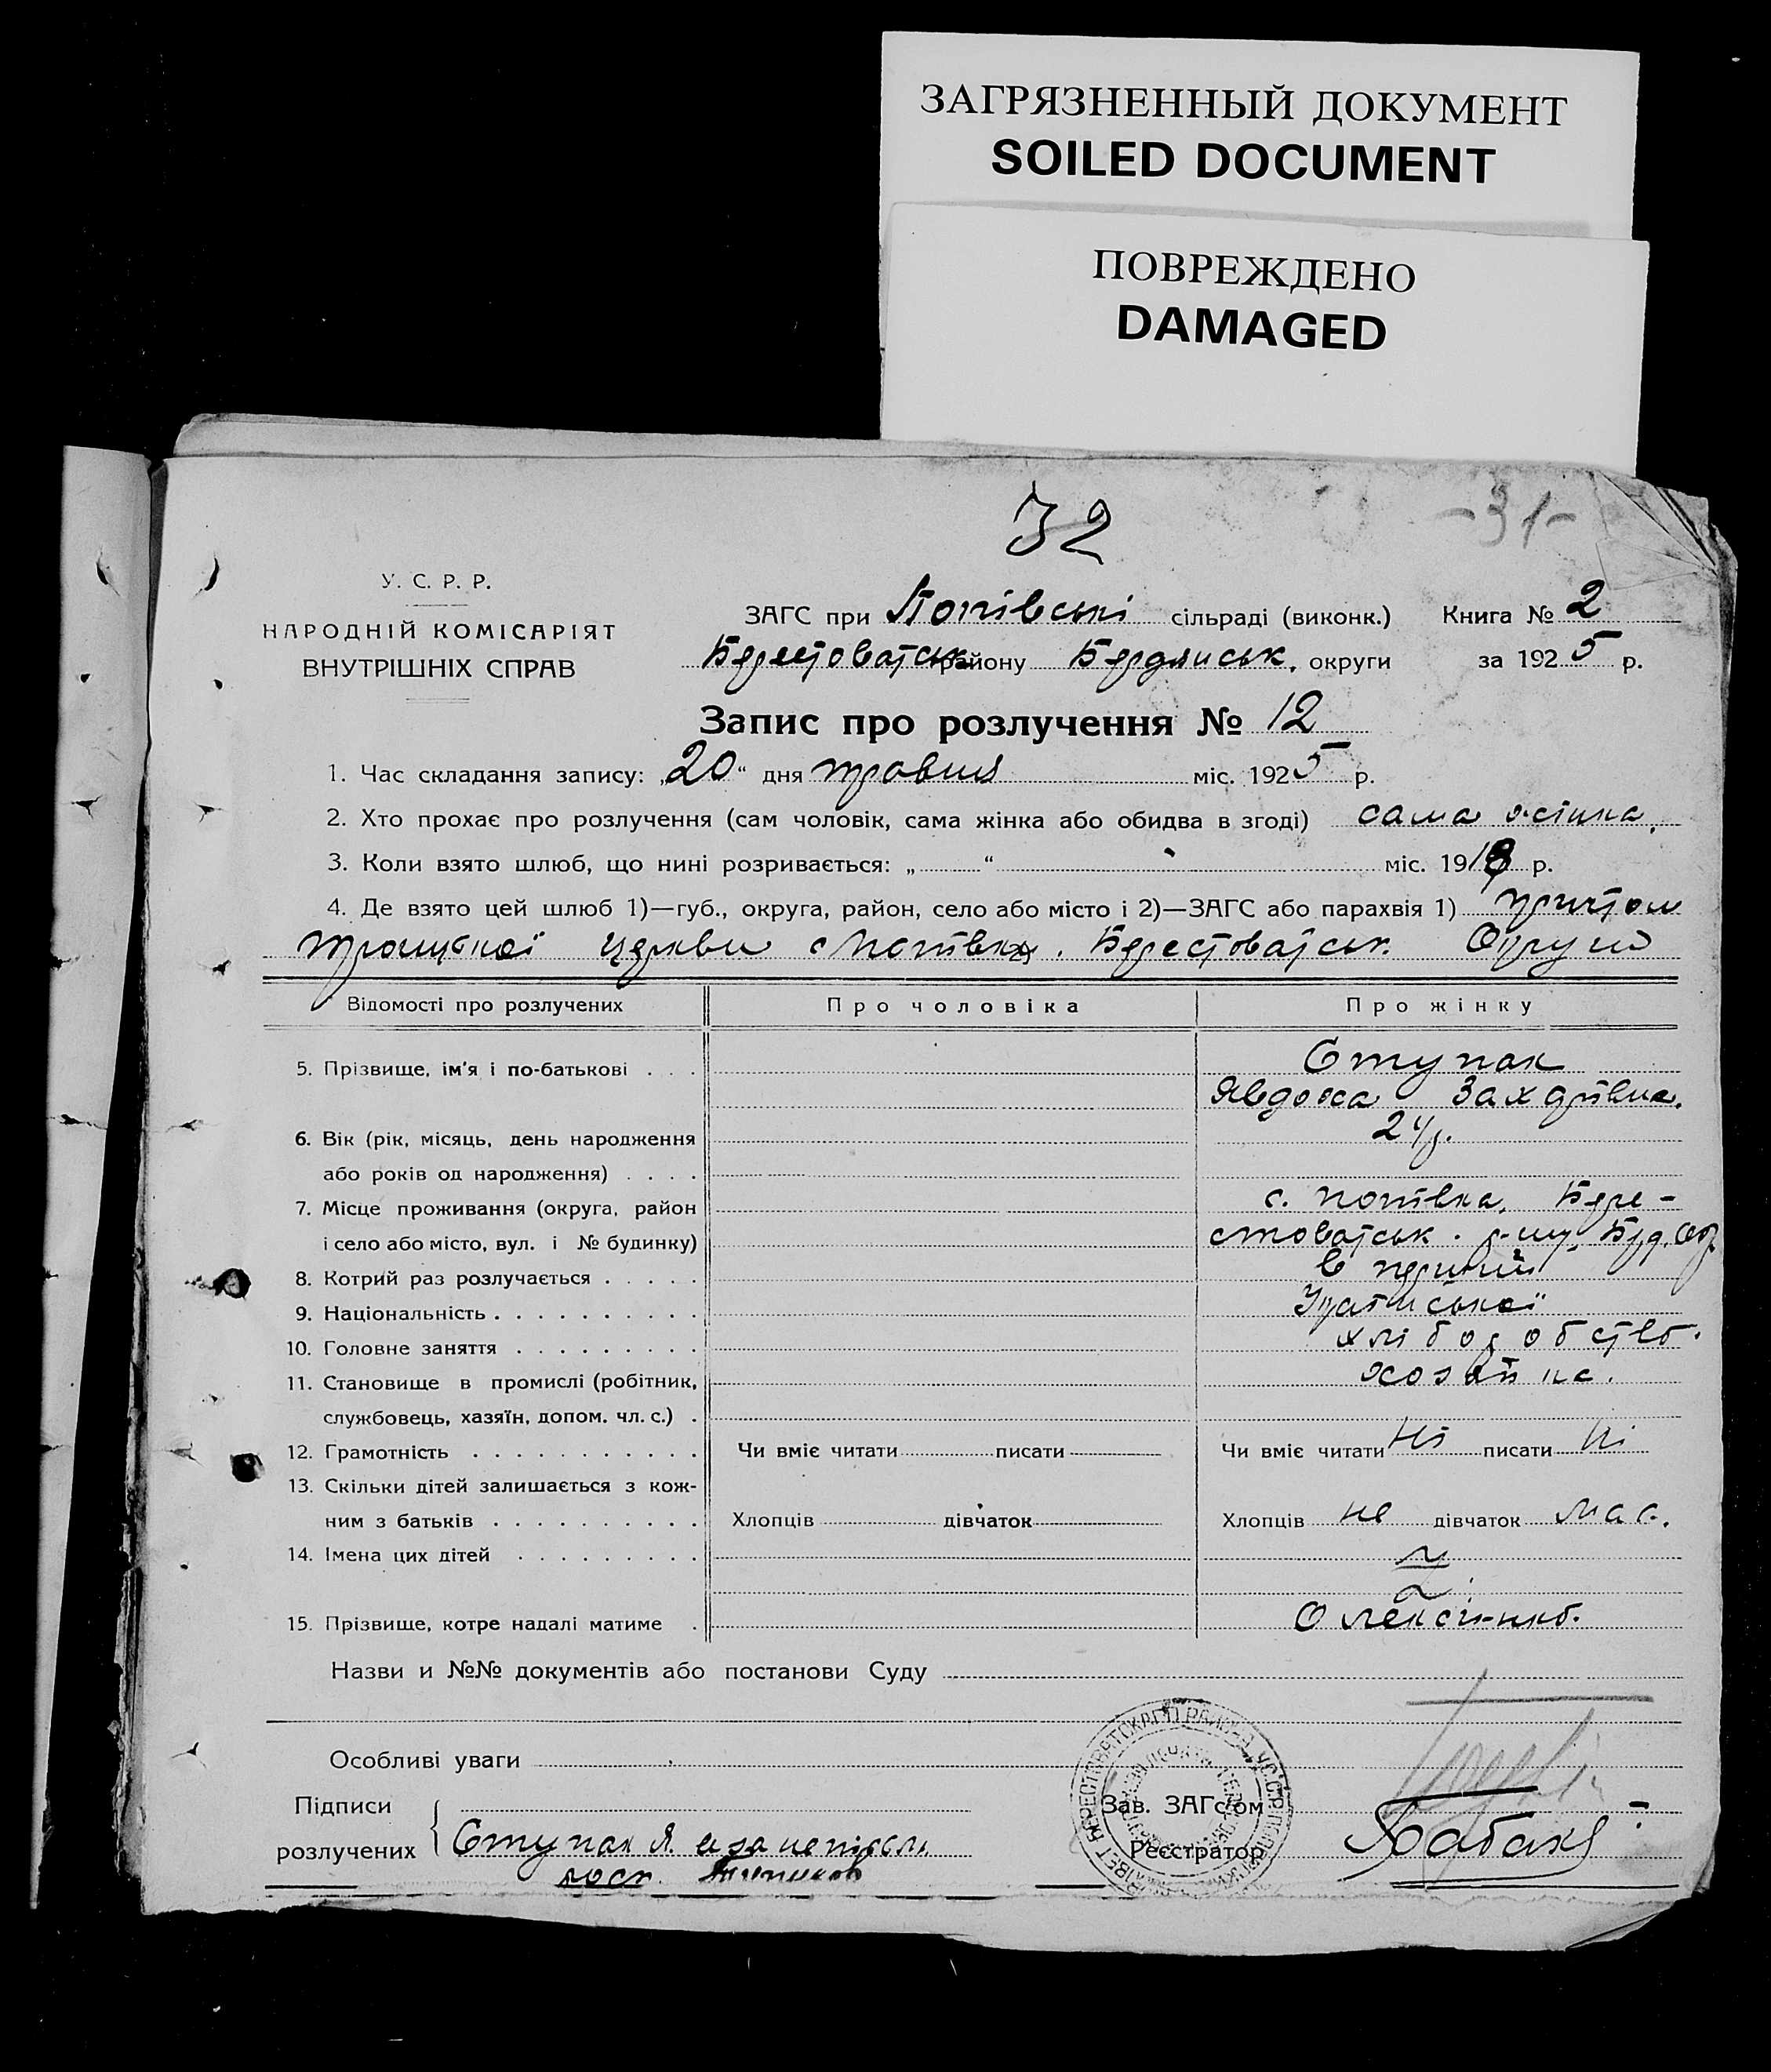 ЗАГРЯЗНЕННЫЙ ДОКУМЕНТ
SOILED DOCUMENT
ПОВРЕЖДЕНО
DAMAGED
32
-31-
У. С. Р. Р.
НАРОДНІЙ КОМІСАРІЯТ
ВНУТРІШНІХ СПРАВ
ЗАГС при Попівські сільраді (виконк.) Книга № 2
Берестоватськ району Бердянськ. округи за 1925 р.
Запис про розлучення № 12
1. Час складання запису: „20“ дня травня міс. 1925 р.
2. Хто прохає про розлучення (сам чоловік, сама жінка або обидва в згоді) сама жінка.
3. Коли взято шлюб, що нині розривається: „ “ міс. 1918 р.
4. Де взято цей шлюб 1)—губ., округа, район, село або місто і 2)—ЗАГС або парахвія 1) притом
троицкої церкви с Попівка. Берестоватськ.
Відомості про розлучених Про чоловіка Про жінку
5. Прізвище, ім'я і по-батькові . . . Ступак
Явдоха Захарівна.
6. Вік (рік, місяць, день народження 24р.
або років од народження) . . . .
7. Місце проживання (округа, район с. Попівка. Бере-
і село або місто, вул. і № будинку) стоватськ. р-ну. Берд. окр
8. Котрий раз розлучається . . . . . в перший
9. Національність . . . . . . . . . . Україньської
10. Головне заняття . . . . . . . . . хліборобство.
11. Становище в промислі (робітник, хозяйка.
службовець, хазяїн, допом. чл. с.) .
12. Грамотність . . . . . . . . . . . Чи вміє читати писати Чи вміє читати ні писати ні
13. Скільки дітей залишається з кож-
ним з батьків . . . . . . . . . . Хлопців дівчаток Хлопців не дівчаток має.
14. Імена цих дітей . . . . . . . . .
15. Прізвище, котре надалі матиме . Олексієнко.
Назви и №№ документів або постанови Суду
Особливі уваги
Підписи
розлучених
Зав. ЗАГс'ом
Реєстратор
Ступак Я. а за неписьм.
росп.
БЕРЕСТОВАТСКАГО РАЙОНА